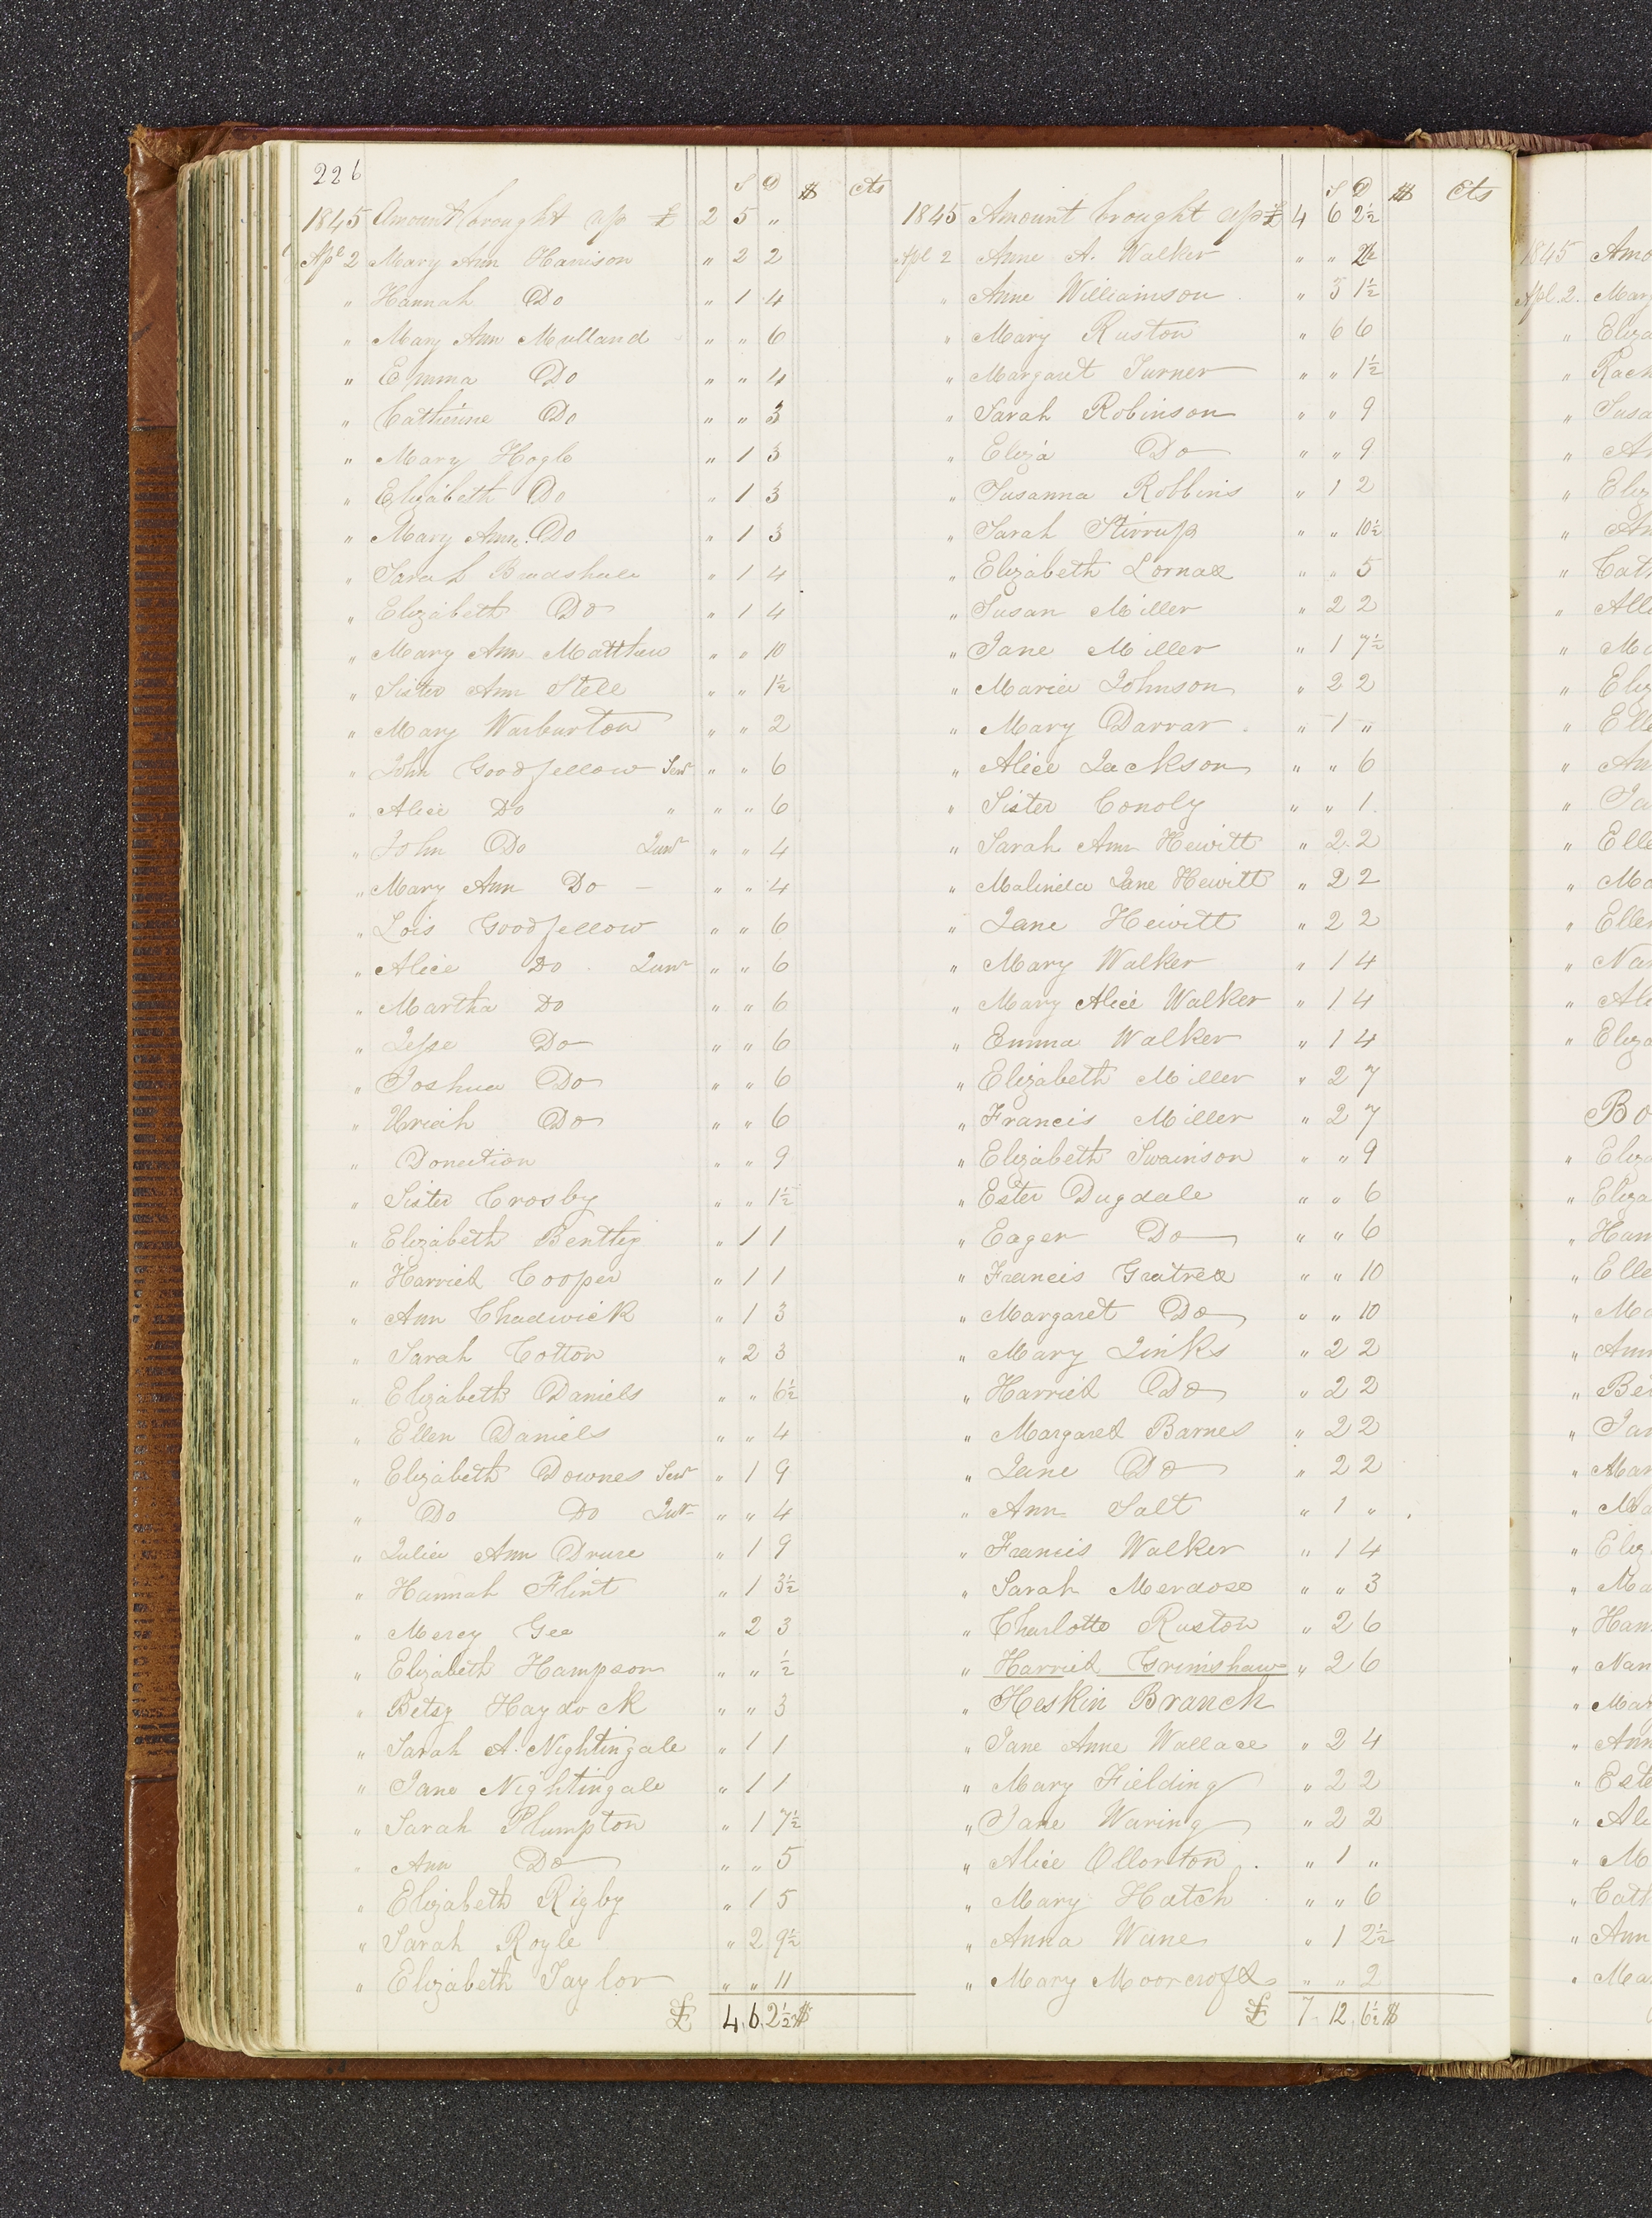 226
S D $ Cts
1845 Amount brought up £ 2 5 "
Apl 2 Mary Ann Harrison " 2 2
" Hannah Do " 1 4
" Mary Ann Mulland " " 6
" Emma Do " " 4
" Catherine Do " " 3
" Mary Hogle " 1 3
" Elizabeth Do " 1 3
" Mary Ann Do " 1 3
" Sarah Bradshaw " 1 4
" Elizabeth Do " 1 4
" Mary Ann Matthew " " 10
" Sister Ann Stell " " 1½
" Mary Warburton " " 2
" John Goodfellow Senr " " 6
" Alice Do " " " 6
" John Do Junr " " 4
" Mary Ann Do — " " 4
" Lois Goodfellow " " 6
" Alice Do Junr " " 6
" Martha Do " " 6
" Jesse Do " " 6
" Joshua Do " " 6
" Uriah Do " " 6
" Donation " " 9
" Sister Crosby " " 1½
" Elizabeth Bentley " 1 1
" Harriet Cooper " 1 1
" Ann Chadwick " 1 3
" Sarah Cotton " 2 3
" Elizabeth Daniels " " 6½
" Ellen Daniels " " 4
" Elizabeth Downes Senr " 1 9
" Do Do Junr " " 4
" Julia Ann Druce " 1 9
" Hannah Flint " 1 3½
" Mercy Gee " 2 3
" Elizabeth Hampson " " ½
" Betsy Haydock " " 3
" Sarah A. Nightingale " 1 1
" Jane Nightingale " 1 1
" Sarah Plumpton " 1 7½
" Ann Do " " 5
" Elizabeth Rigby " 1 5
" Sarah Royle " 2 9½
" Elizabeth Taylor " " 11
£ 4 6 2½ $
S D $ Cts
1845 Amount brought up £ 4 6 2½
Apl 2 Anne A. Walker " "
" Anne Williamson " 3 1½
" Mary Ruston " 6 6
" Margaret Turner " " 1½
" Sarah Robinson " " 9
" Eliza Do " " 9
" Susanna Robbins " 1 2
" Sarah Stirrup " " 10½
" Elizabeth Lomax " " 5
" Susan Miller " 2 2
" Jane Miller " 1 7½
" Maria Johnson " 2 2
" Mary Darrar " 1 "
" Alice Jackson " " 6
" Sister Conoly " " 1
" Sarah Ann Hewitt " 2 2
" Malinda Jane Hewitt " 2 2
" Jane Hewitt " 2 2
" Mary Walker " 1 4
" Mary Alice Walker " 1 4
" Emma Walker " 1 4
" Elizabeth Miller " 2 7
" Francis Miller " 2 7
" Elizabeth Swainson " " 9
" Ester Dugdale " " 6
" Eager Do " " 6
" Francis Gratrex " " 10
" Margaret Do " " 10
" Mary Jinks " 2 2
" Harriet Do " 2 2
" Margaret Barnes " 2 2
" Jane Do " 2 2
" Ann Salt " 1 "
" Francis Walker " 1 4
" Sarah Merdose " " 3
" Charlotte Ruston " 2 6
" Harriet Grimshaw " 2 6
" Heskin Branch
" Jane Anne Wallace " 2 4
" Mary Fielding " 2 2
" Jane Waring " 2 2
" Alice Ollorton " 1 "
" Mary Hatch " " 6
" Anna Wane " 1 2½
" Mary Moorcroft " " 2
£ 7 12 6½ $
1845
Apl. 2.